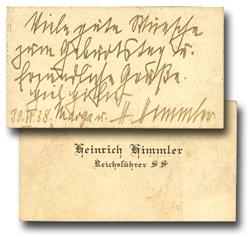 Viele gute Wünsche
zum Geburtstag u.
freundliche Grüße.
Heil Hitler
30.VI.38. Marga u. H. Himmler
Heinrich Himmler
Reichsführer SS